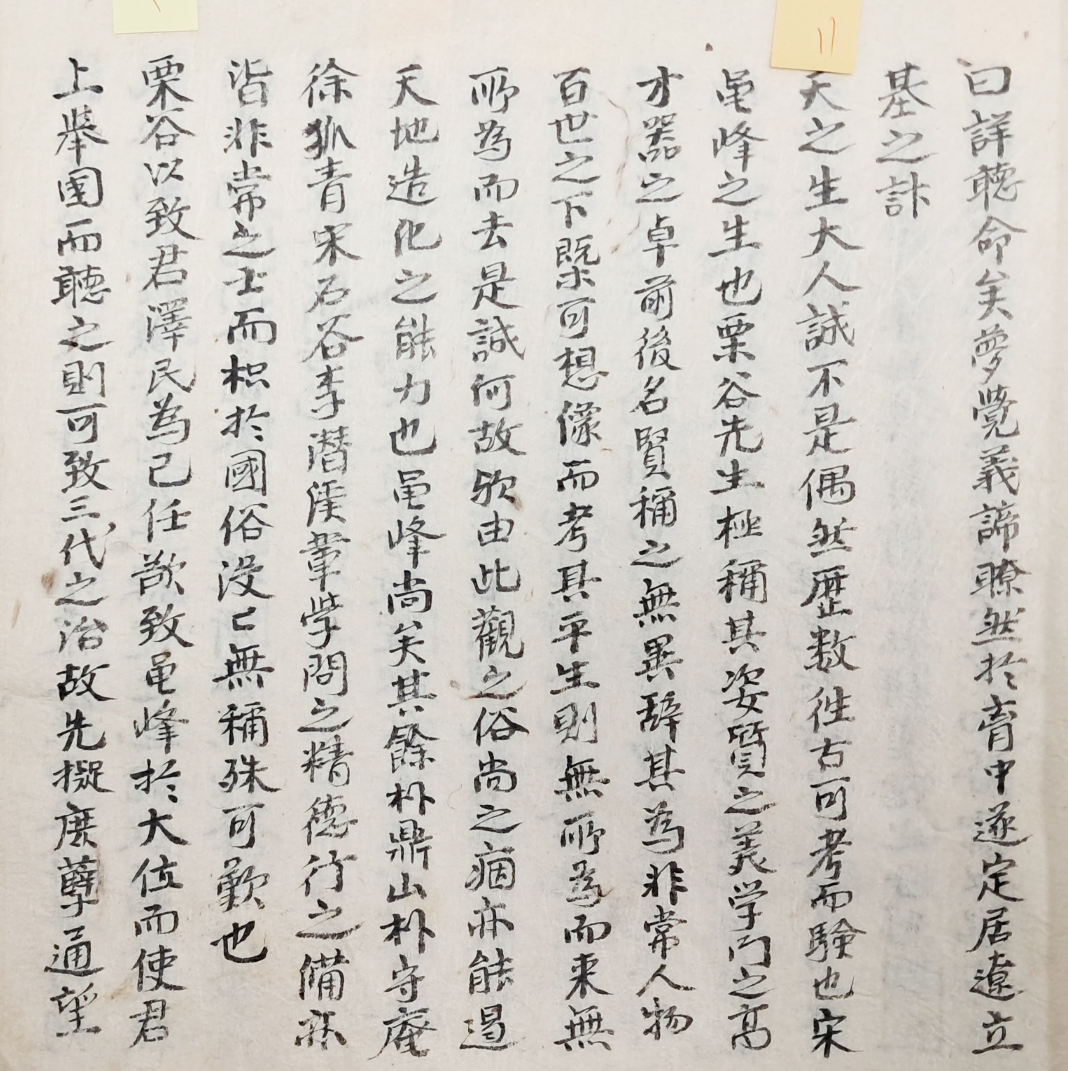 曰詳聽命矣夢覺義諦瞭然於胷中遂定居遠立
基之計
天之生大人誠不是偶然歷数徃古可考而験也宋
龜峰之生也栗谷先生極稱其姿質之美学问之高
才器之卓前後名賢稱之無異辭其為非常人物
百世之下槩可想像而考其平生則無所為而来無
所為而去是誠何故欤由此觀之俗尚之痼亦能遏
天地造化之能力也龜峰尚矣其餘朴鼎山朴守庵
徐孤青宋石谷李潜溪軰學問之精德行之備亦
皆非常之士而枳於國俗没亡無稱殊可歎也
栗谷以致君澤民為己任欲致龜峰於大位而使君
上舉国而聽之則可致三代之治故先擬庶孽通望